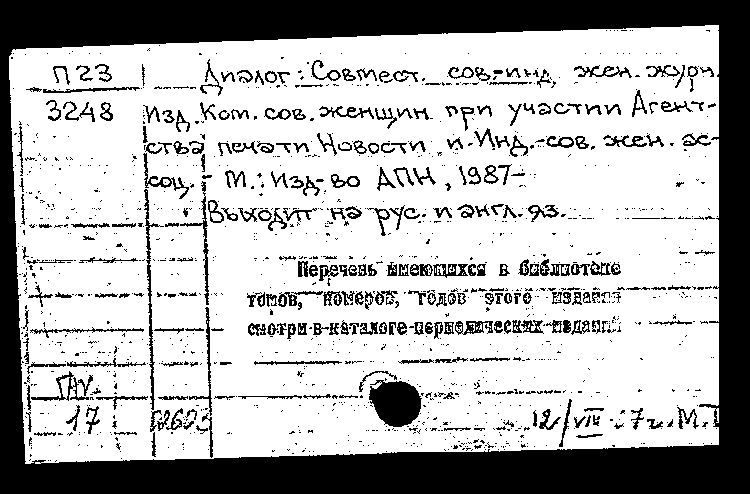 П23 Диалог: Совмест. сов.-инд. жен. журн.
3248 Изд. Ком. сов. женщин при участии Агент-
ства печати Новости и Инд.-сов. жен. ас-
соц. - М.: Изд-во АПН, 1987-
Выходит на рус. и англ. яз.
Перечень имеющихся в библиотеке
томов, номеров, годов этого издания
смотри в каталоге периодических изданий
17 12/VIII 87г. М.